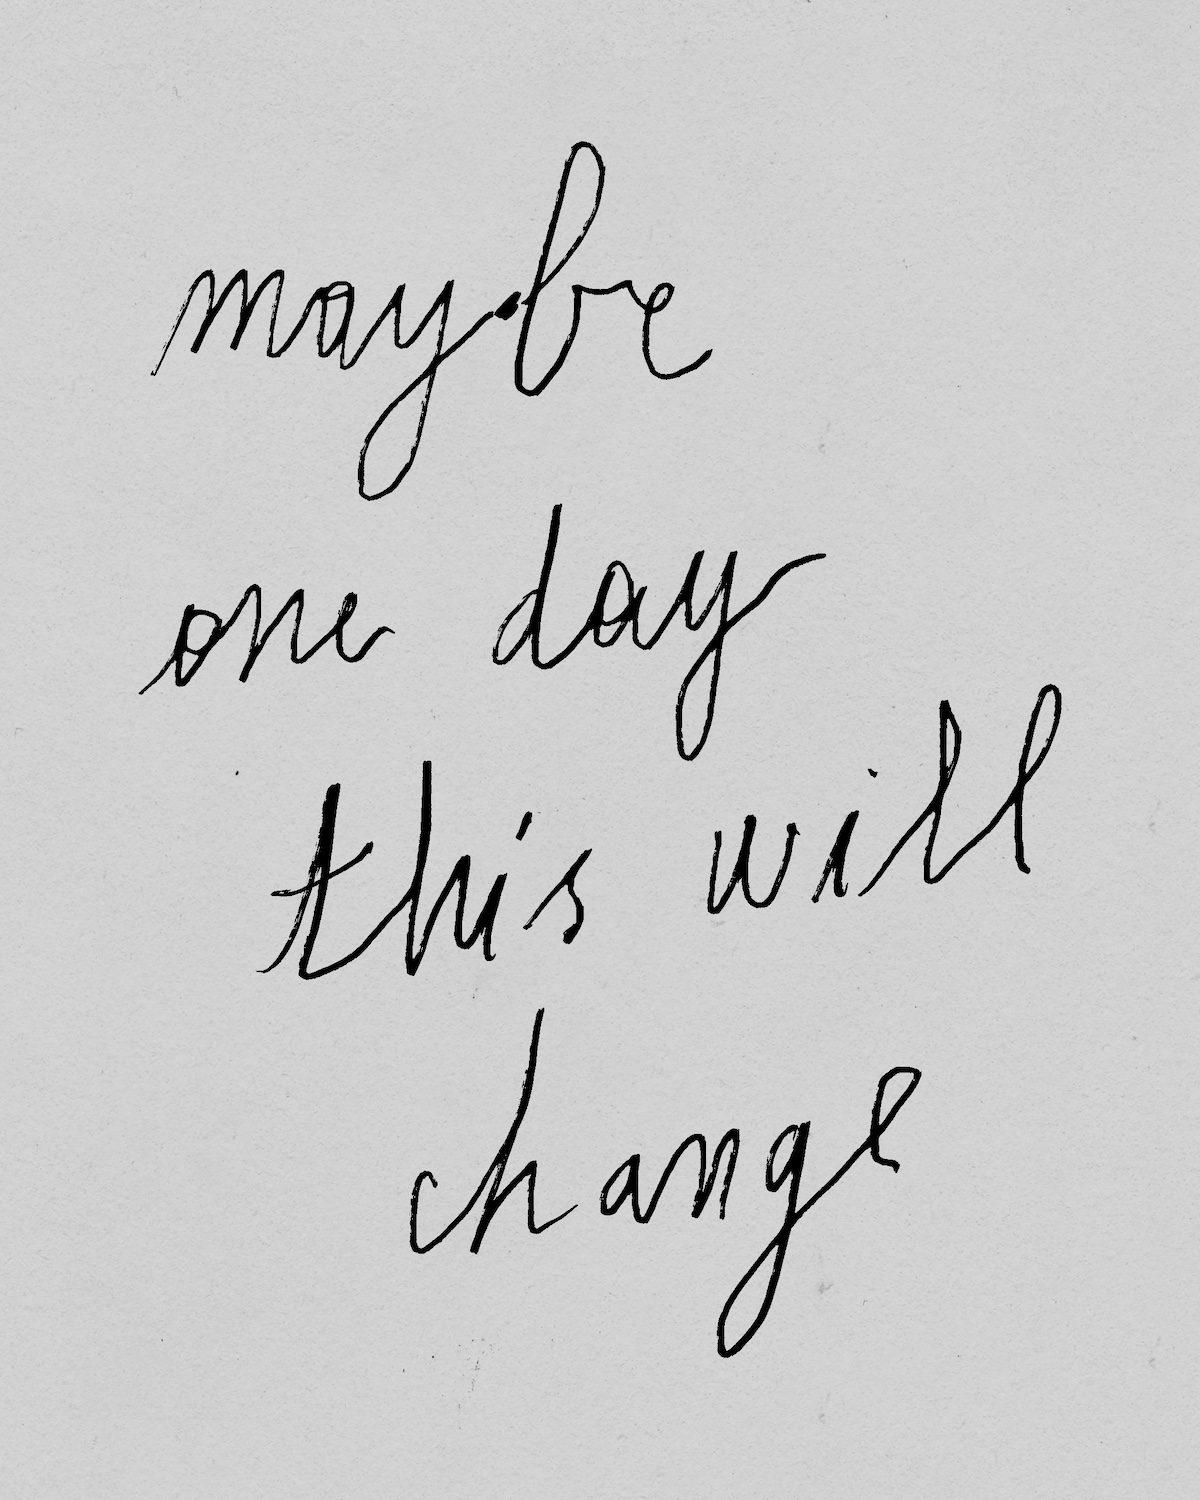 maybe
one day
this will
change